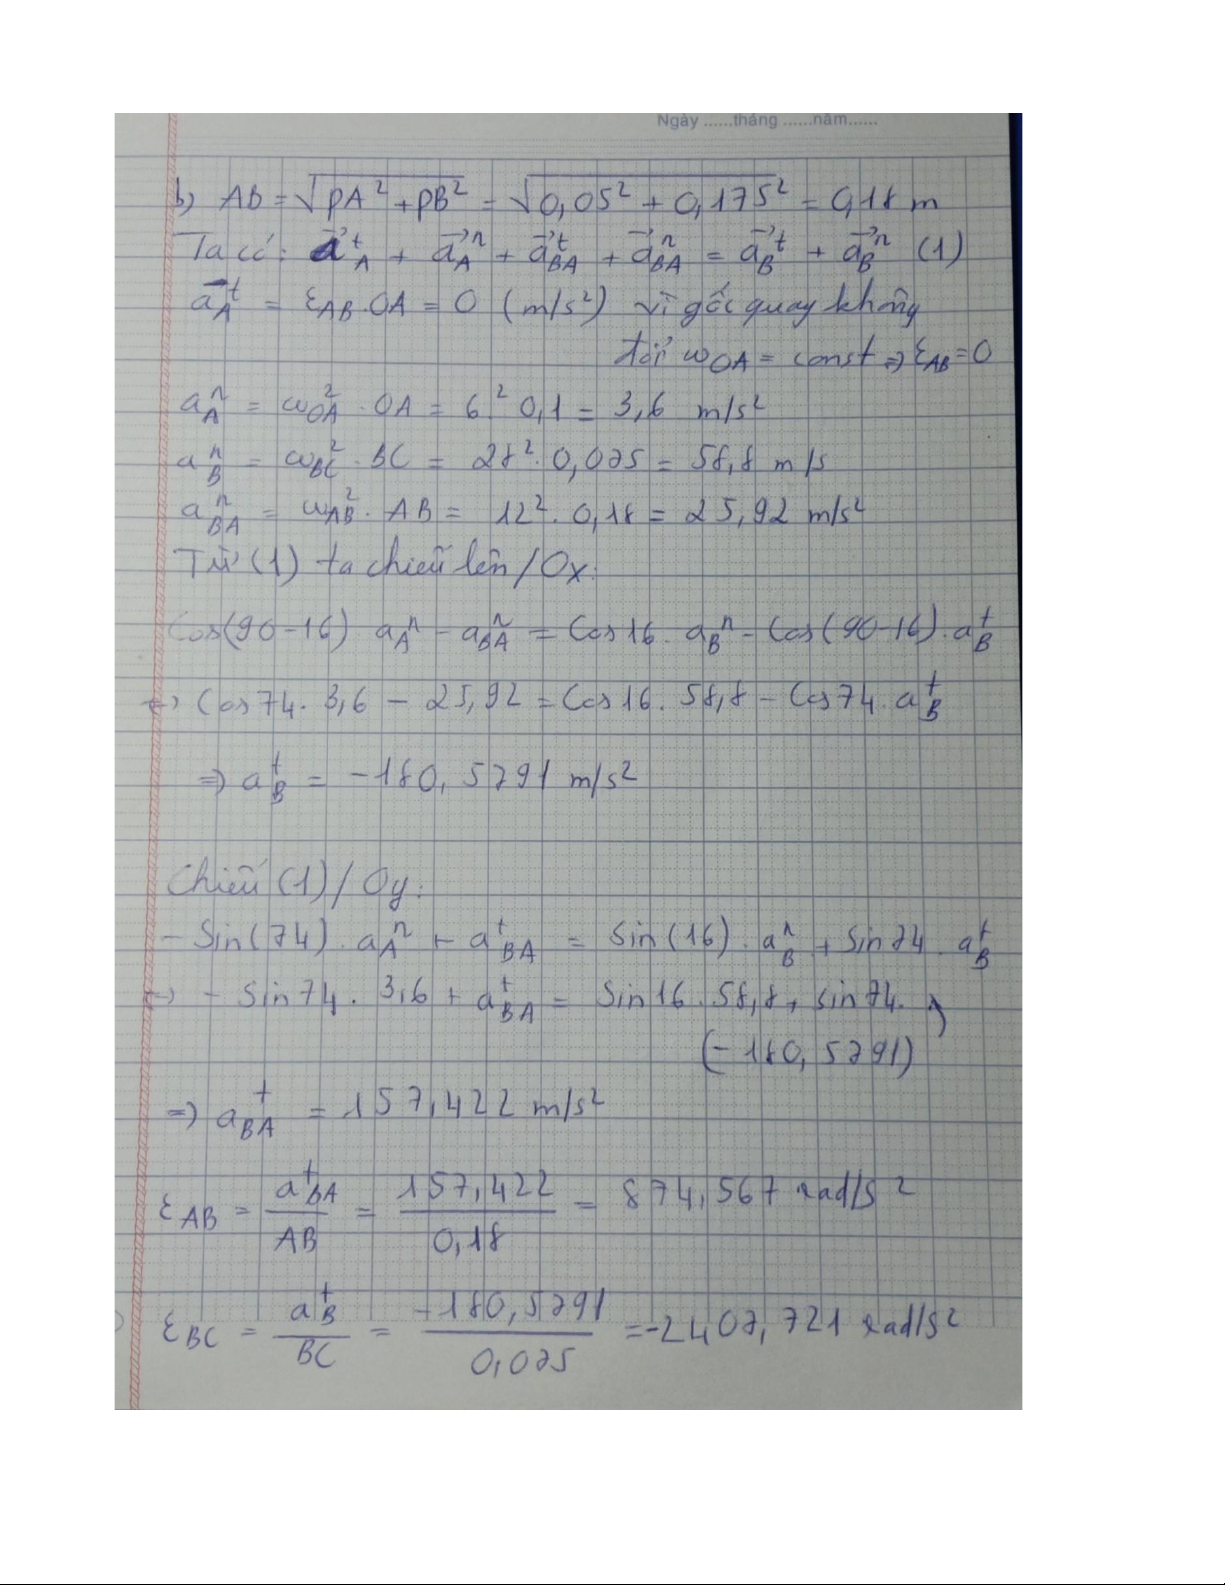 Ngày ......tháng ......năm......
b) AB = √(PA² + PB²) = √(0,05² + 0,175²) = 0,18 m
Ta có: a⃗ᵗ_A + a⃗ⁿ_A + a⃗ᵗ_BA + a⃗ⁿ_BA = a⃗ᵗ_B + a⃗ⁿ_B (1)
a⃗ᵗ_A = ε_AB.OA = 0 (m/s²) vì gốc quay không
đổi ω_OA = const => ε_AB = 0
aⁿ_A = ω²_OA . OA = 6².0,1 = 3,6 m/s²
aⁿ_B = ω²_BC . BC = 28².0,075 = 58,8 m/s
aⁿ_BA = ω²_AB . AB = 12².0,18 = 25,92 m/s²
Từ (1) ta chiếu lên /Ox:
Cos(90-16) aⁿ_A - aⁿ_BA = Cos16. aⁿ_B - Cos(90-16). aᵗ_B
<=> Cos74. 3,6 - 25,92 = Cos16. 58,8 - Cos74. aᵗ_B
=> aᵗ_B = -180,5791 m/s²
Chiếu (1)/Oy:
- Sin(74). aⁿ_A + aᵗ_BA = Sin(16). aⁿ_B + Sin74. aᵗ_B
<=> - Sin74. 3,6 + aᵗ_BA = Sin16. 58,8 + sin74.
(-180,5791)
=> aᵗ_BA = 157,422 m/s²
ε_AB = aᵗ_BA / AB = 157,422 / 0,18 = 874,567 rad/s²
ε_BC = aᵗ_B / BC = -180,5791 / 0,075 = -2407,721 rad/s²